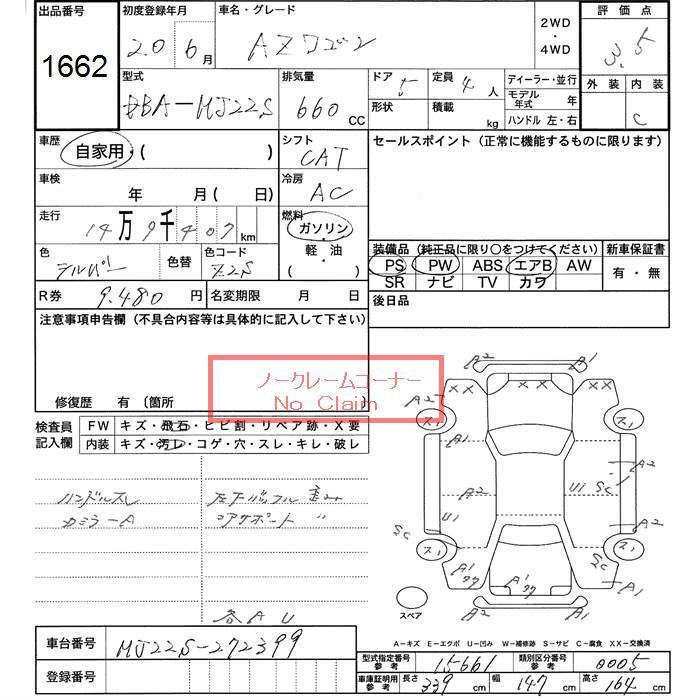 出品番号 初度登録年月 車名・グレード 評価点
1662 20 6月 AZワゴン 2WD・4WD 3.5
型式 排気量 ドア 5 定員 4人 ディーラー・並行 外装 内装
DBA-MJ22S 660cc 形状 積載 kg モデル年式 年 C
ハンドル 左・右
車歴 自家用・( ) シフト セールスポイント (正常に機能するものに限ります)
CAT
車検 年 月(日) 冷房 AC
走行 14万9千407km 燃料 ガソリン・軽・油・( )
色 色替 色コード 装備品 (純正品に限り○をつけてください) 新車保証書
シルバー Z2S PS PW ABS エアB AW 有・無
SR ナビ TV カワ
R券 9,480円 名変期限 月 日 後日品
注意事項申告欄 (不具合内容等は具体的に記入して下さい)
ノークレームコーナー
No Claim
修復歴 有 (箇所 )
検査員記入欄 FW キズ・飛石・ヒビ割・リペア跡・X要
内装 キズ・汚レ・コゲ・穴・スレ・キレ・破レ
ハンドルスレ
カミラーA コアサポート 〃
各AU
A2 A1
XX XX
A2
ス1 ス1
A1 A2
A2 Ui Sc
Ui A2
Sc Sc
ス1 ス1
A1 A1 A1
スペア A2 A1
A-キズ E-エクボ U-凹み W-補修跡 S-サビ C-腐食 XX-交換済
車台番号 MJ22S-272399
型式指定番号参考 15661 類別区分番号参考 0005
登録番号
車庫証明用参考 長さ 339cm 幅 147cm 高さ 164cm